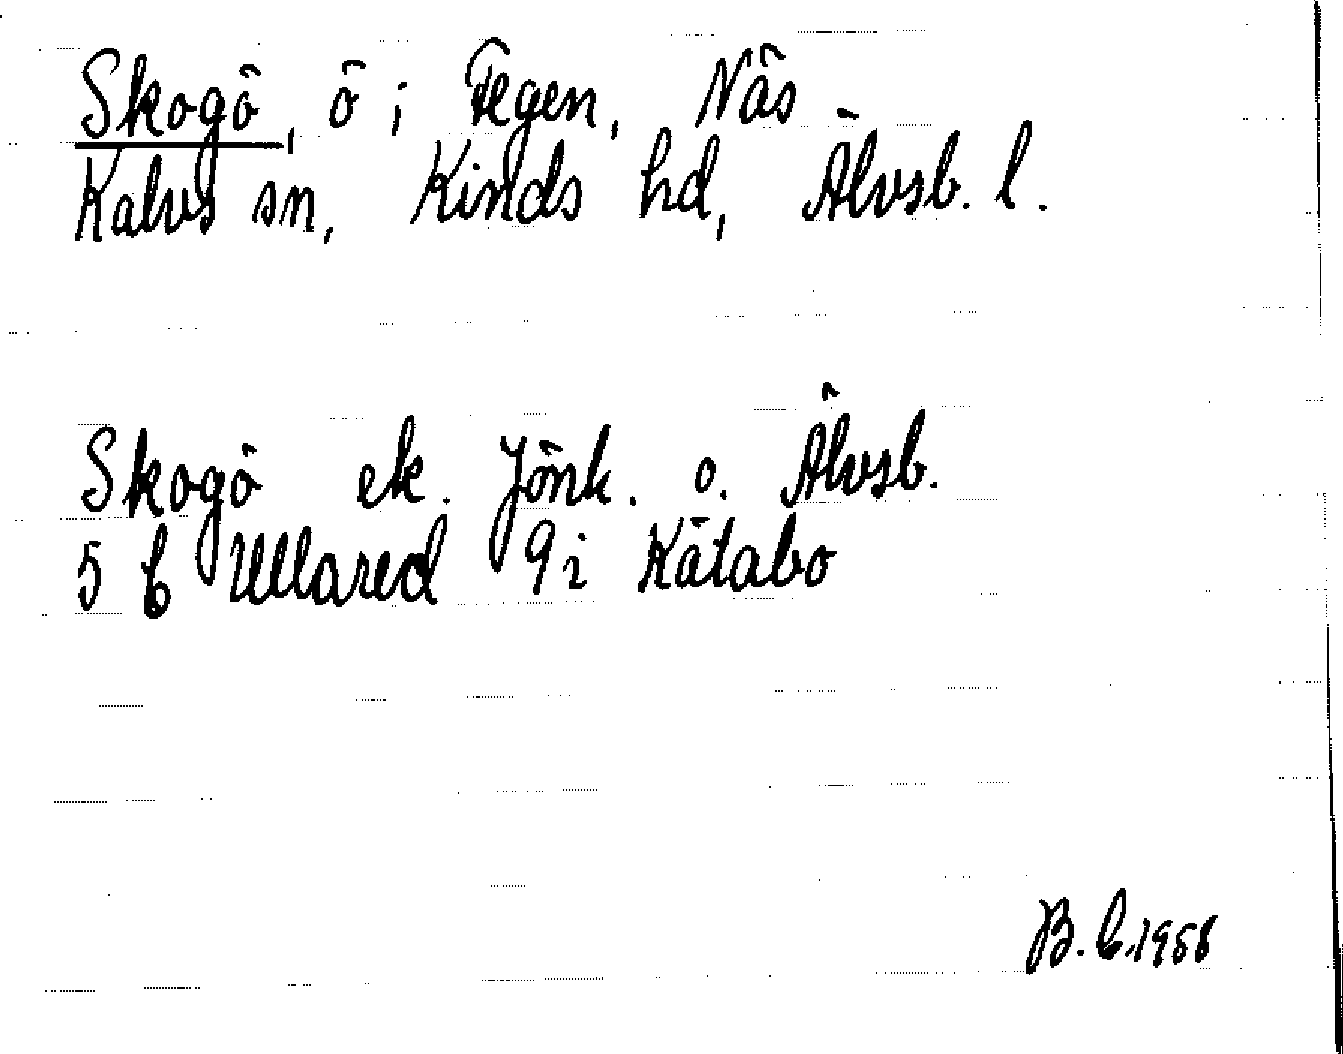 Skogö, ö i Fegen, Näs
Kalvs sn, Kinds hd, Älvsb. l.
Skogö ek. Jönk. o. Älvsb.
5 C Ullared 9i Kätabo
B. C. 1958